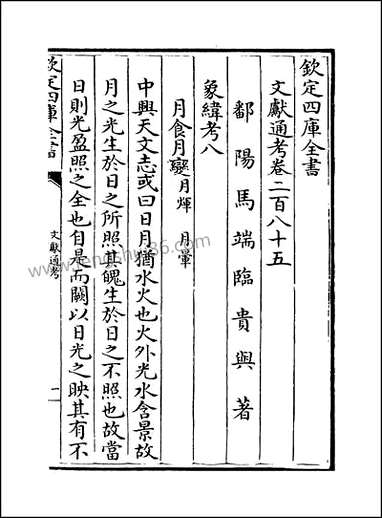 欽定四庫全書
文獻通考卷二百八十五
鄱陽馬端臨貴與著
象緯考八
月食月變月煇 月暈
中興天文志或曰日月猶水火也火外光水含景故
月之光生於日之所照其魄生於日之不照也故當
日則光盈照之全也自是而闕以日光之映其有不
欽定四庫全書
文獻通考
一